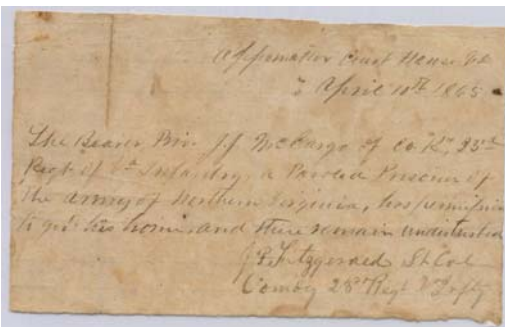 Appomattox Court House Va
April 10th 1865
The Bearer, Priv. J.J. McCargo of Co. "K", 23rd
Regt of Va Infantry, a Paroled Prisoner of
the Army of Northern Virginia, has permission
to go to his home, and there remain undisturbed
Fitzgerald Lt Col
Comdg 23rd Regt Va Infty